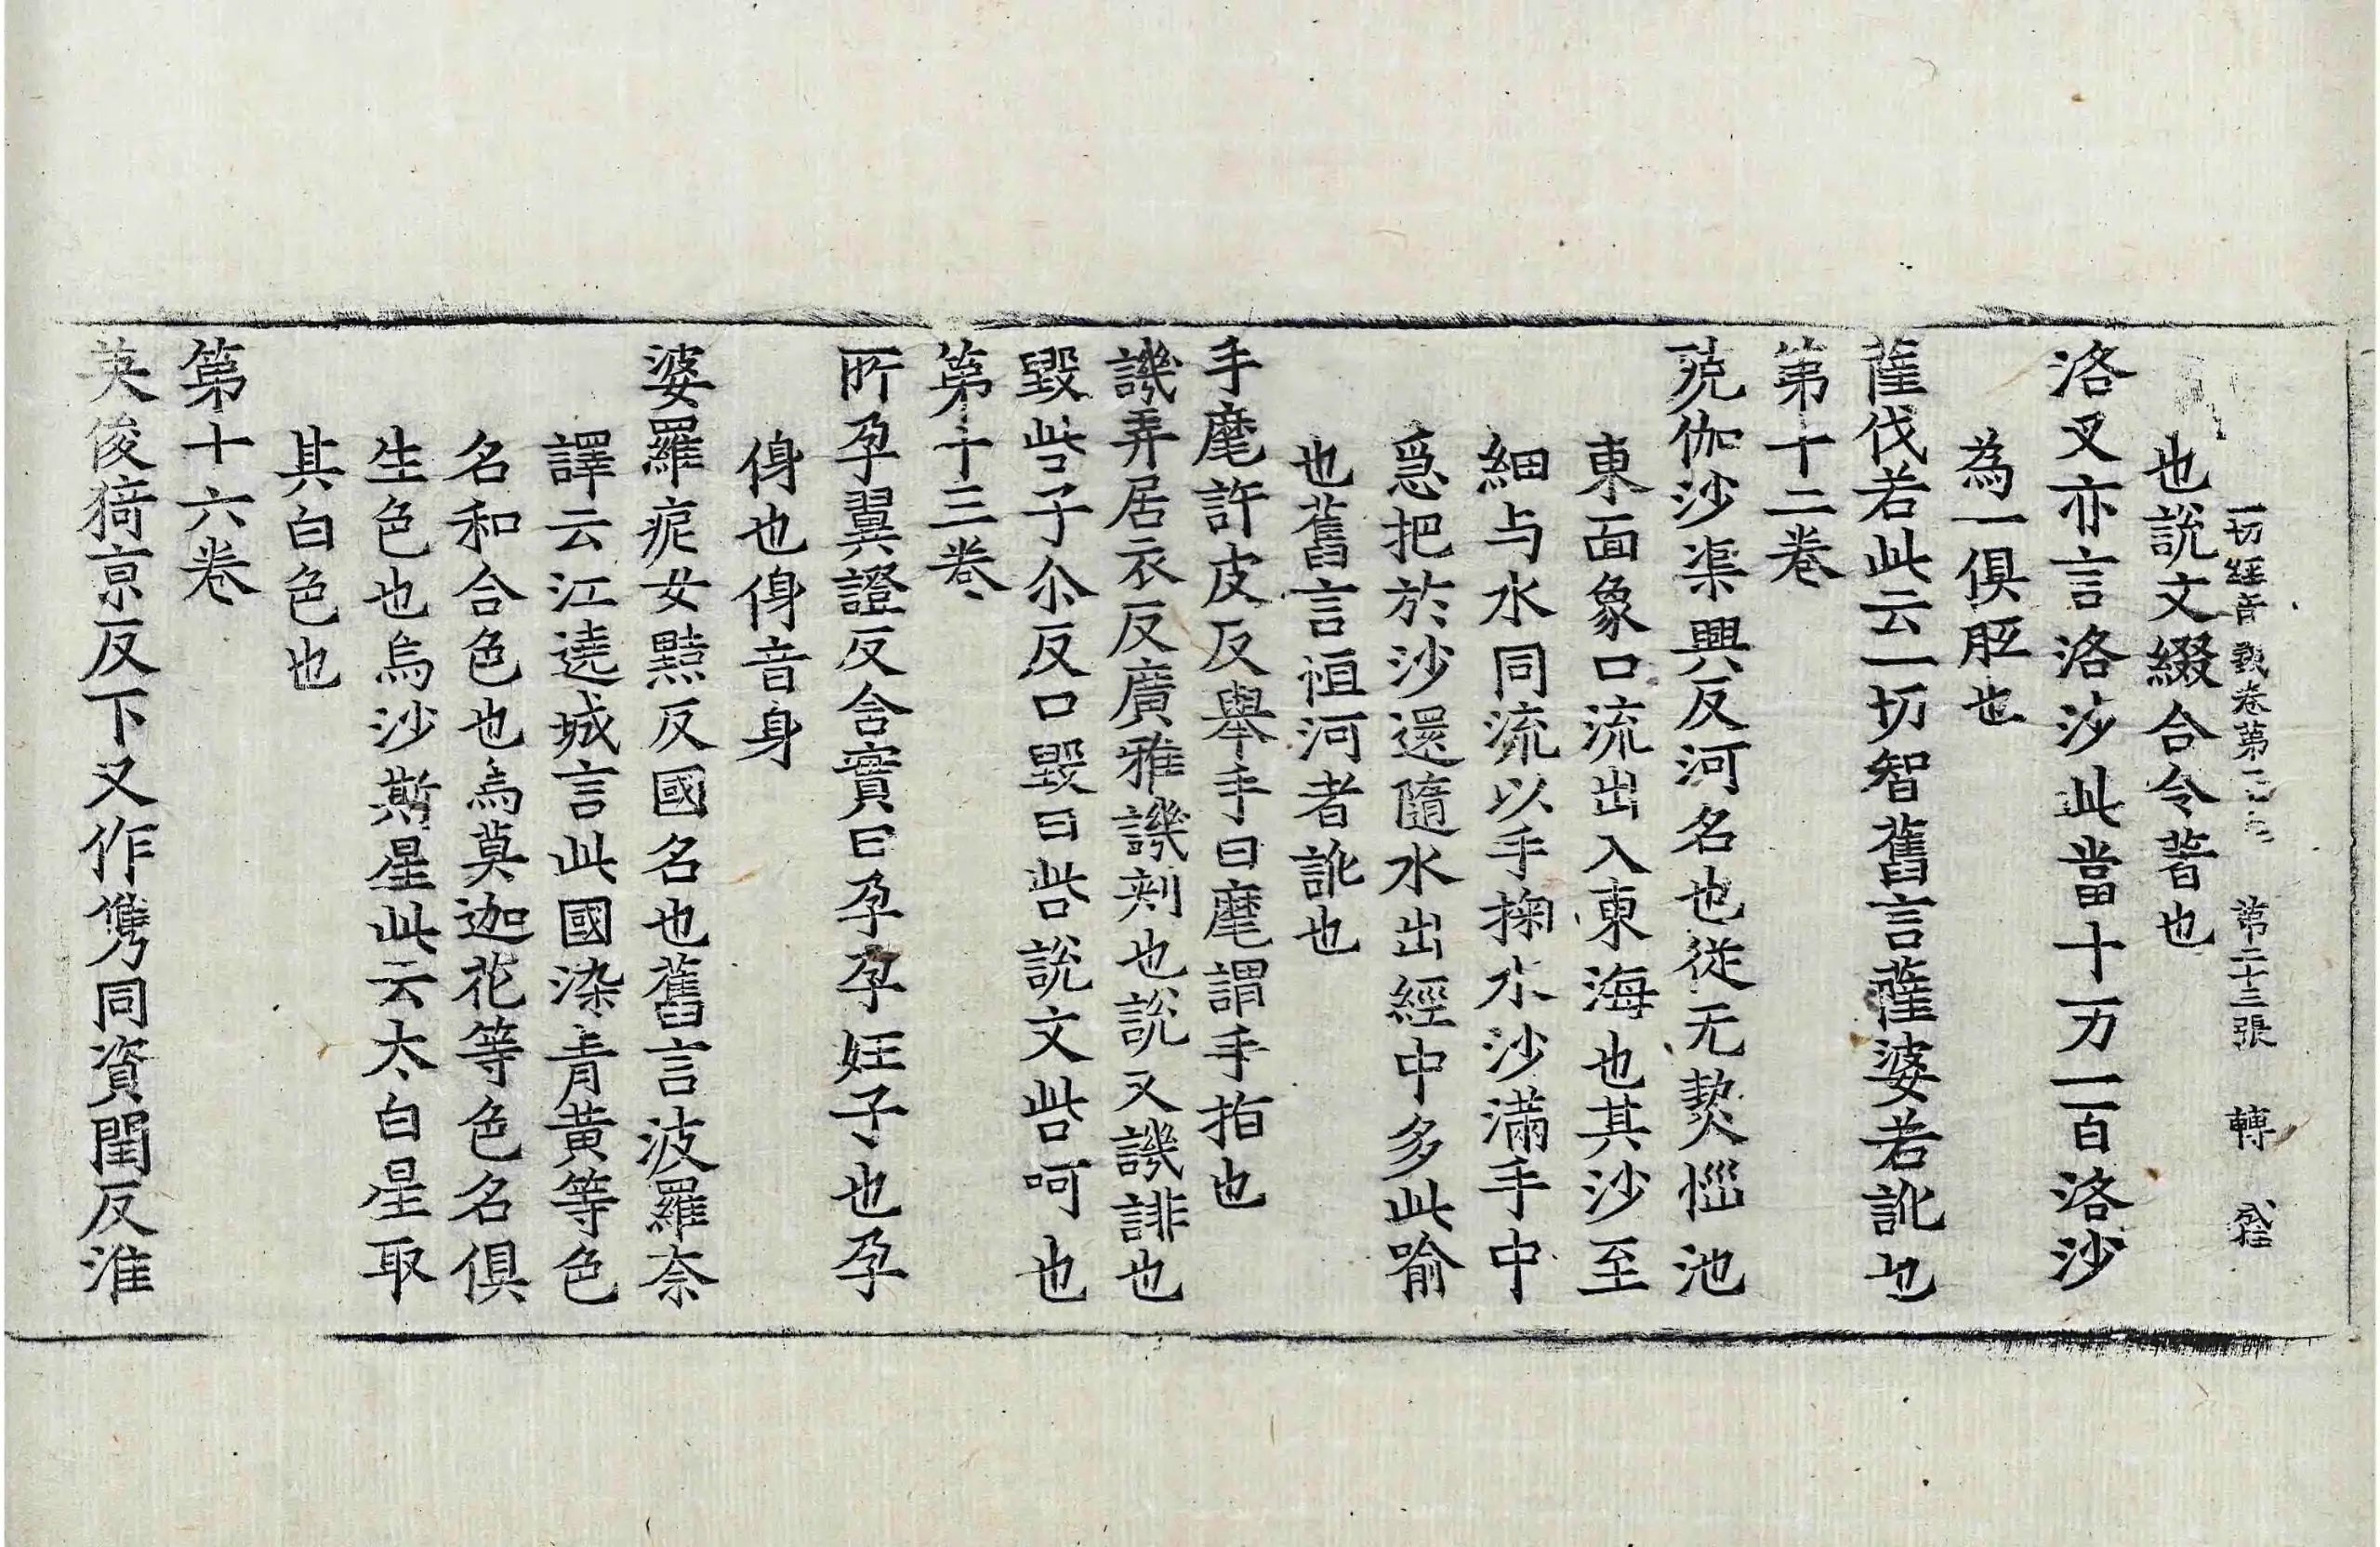 一切經音義卷第二十 第二十三張 轉
也說文綴合令著也
洛叉亦言洛沙此當十万一百洛沙
為一俱胝也
薩伐若此云一切智舊言薩婆若訛也
第十二卷
殑伽沙渠興反河名也從无𤍠惱池
東面象口流出入東海也其沙至
細与水同流以手掬水沙滿手中
爲把於沙還隨水出經中多此喻
也舊言恒河者訛也
手麾許皮反舉手曰麾謂手指也
譏弄居衣反廣雅譏刺也說文譏誹也
毀呰子尒反口毀曰呰說文呰呵也
第十三卷
所孕翼證反含實曰孕孕妊子也孕
㑗也㑗音身
婆羅痆女黠反國名也舊言波羅奈
譯云江遶城言此國染青黃等色
名和合色也烏莫迦花等色名俱
生色也烏沙斯星此云太白星取
其白色也
第十六卷
英俊猗京反下又作㑺同資閏反淮